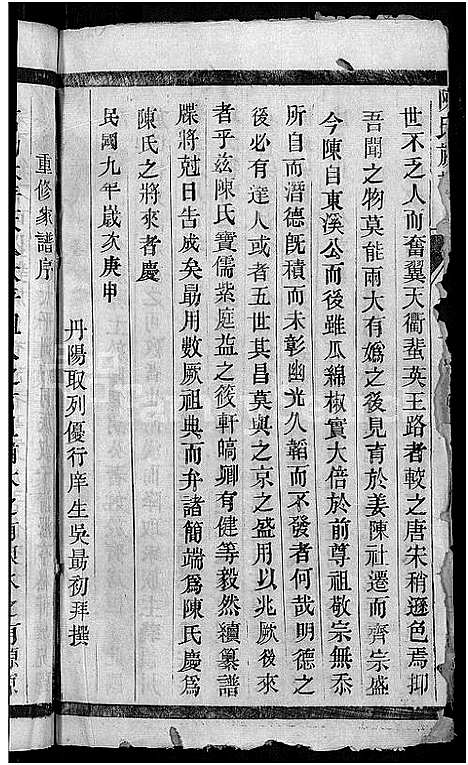 陳氏
世不乏人而奮翼天衢蜚英王路者較之唐朱稍遜色焉抑
吾聞之物莫能兩大有嬀之後見育於姜陳社遷而齊宗盛
今陳自東溪公而後雖瓜綿椒實大倍於前尊祖敬宗無忝
所自而潛德旣積而未彰幽光久韜而不發者何哉明德之
後必有達人或者五世其昌莫與之京之盛用以兆厥後來
者乎兹陳氏寶儒紫庭益之筱軒暠卿有健等毅然續纂譜
牒將尅日告成矣最用數厥祖典而弁諸簡端爲陳氏慶爲
陳氏之將來者慶
民國九年歲次庚申
丹陽取列優行庠生吳最初拜撰
重修家譜序